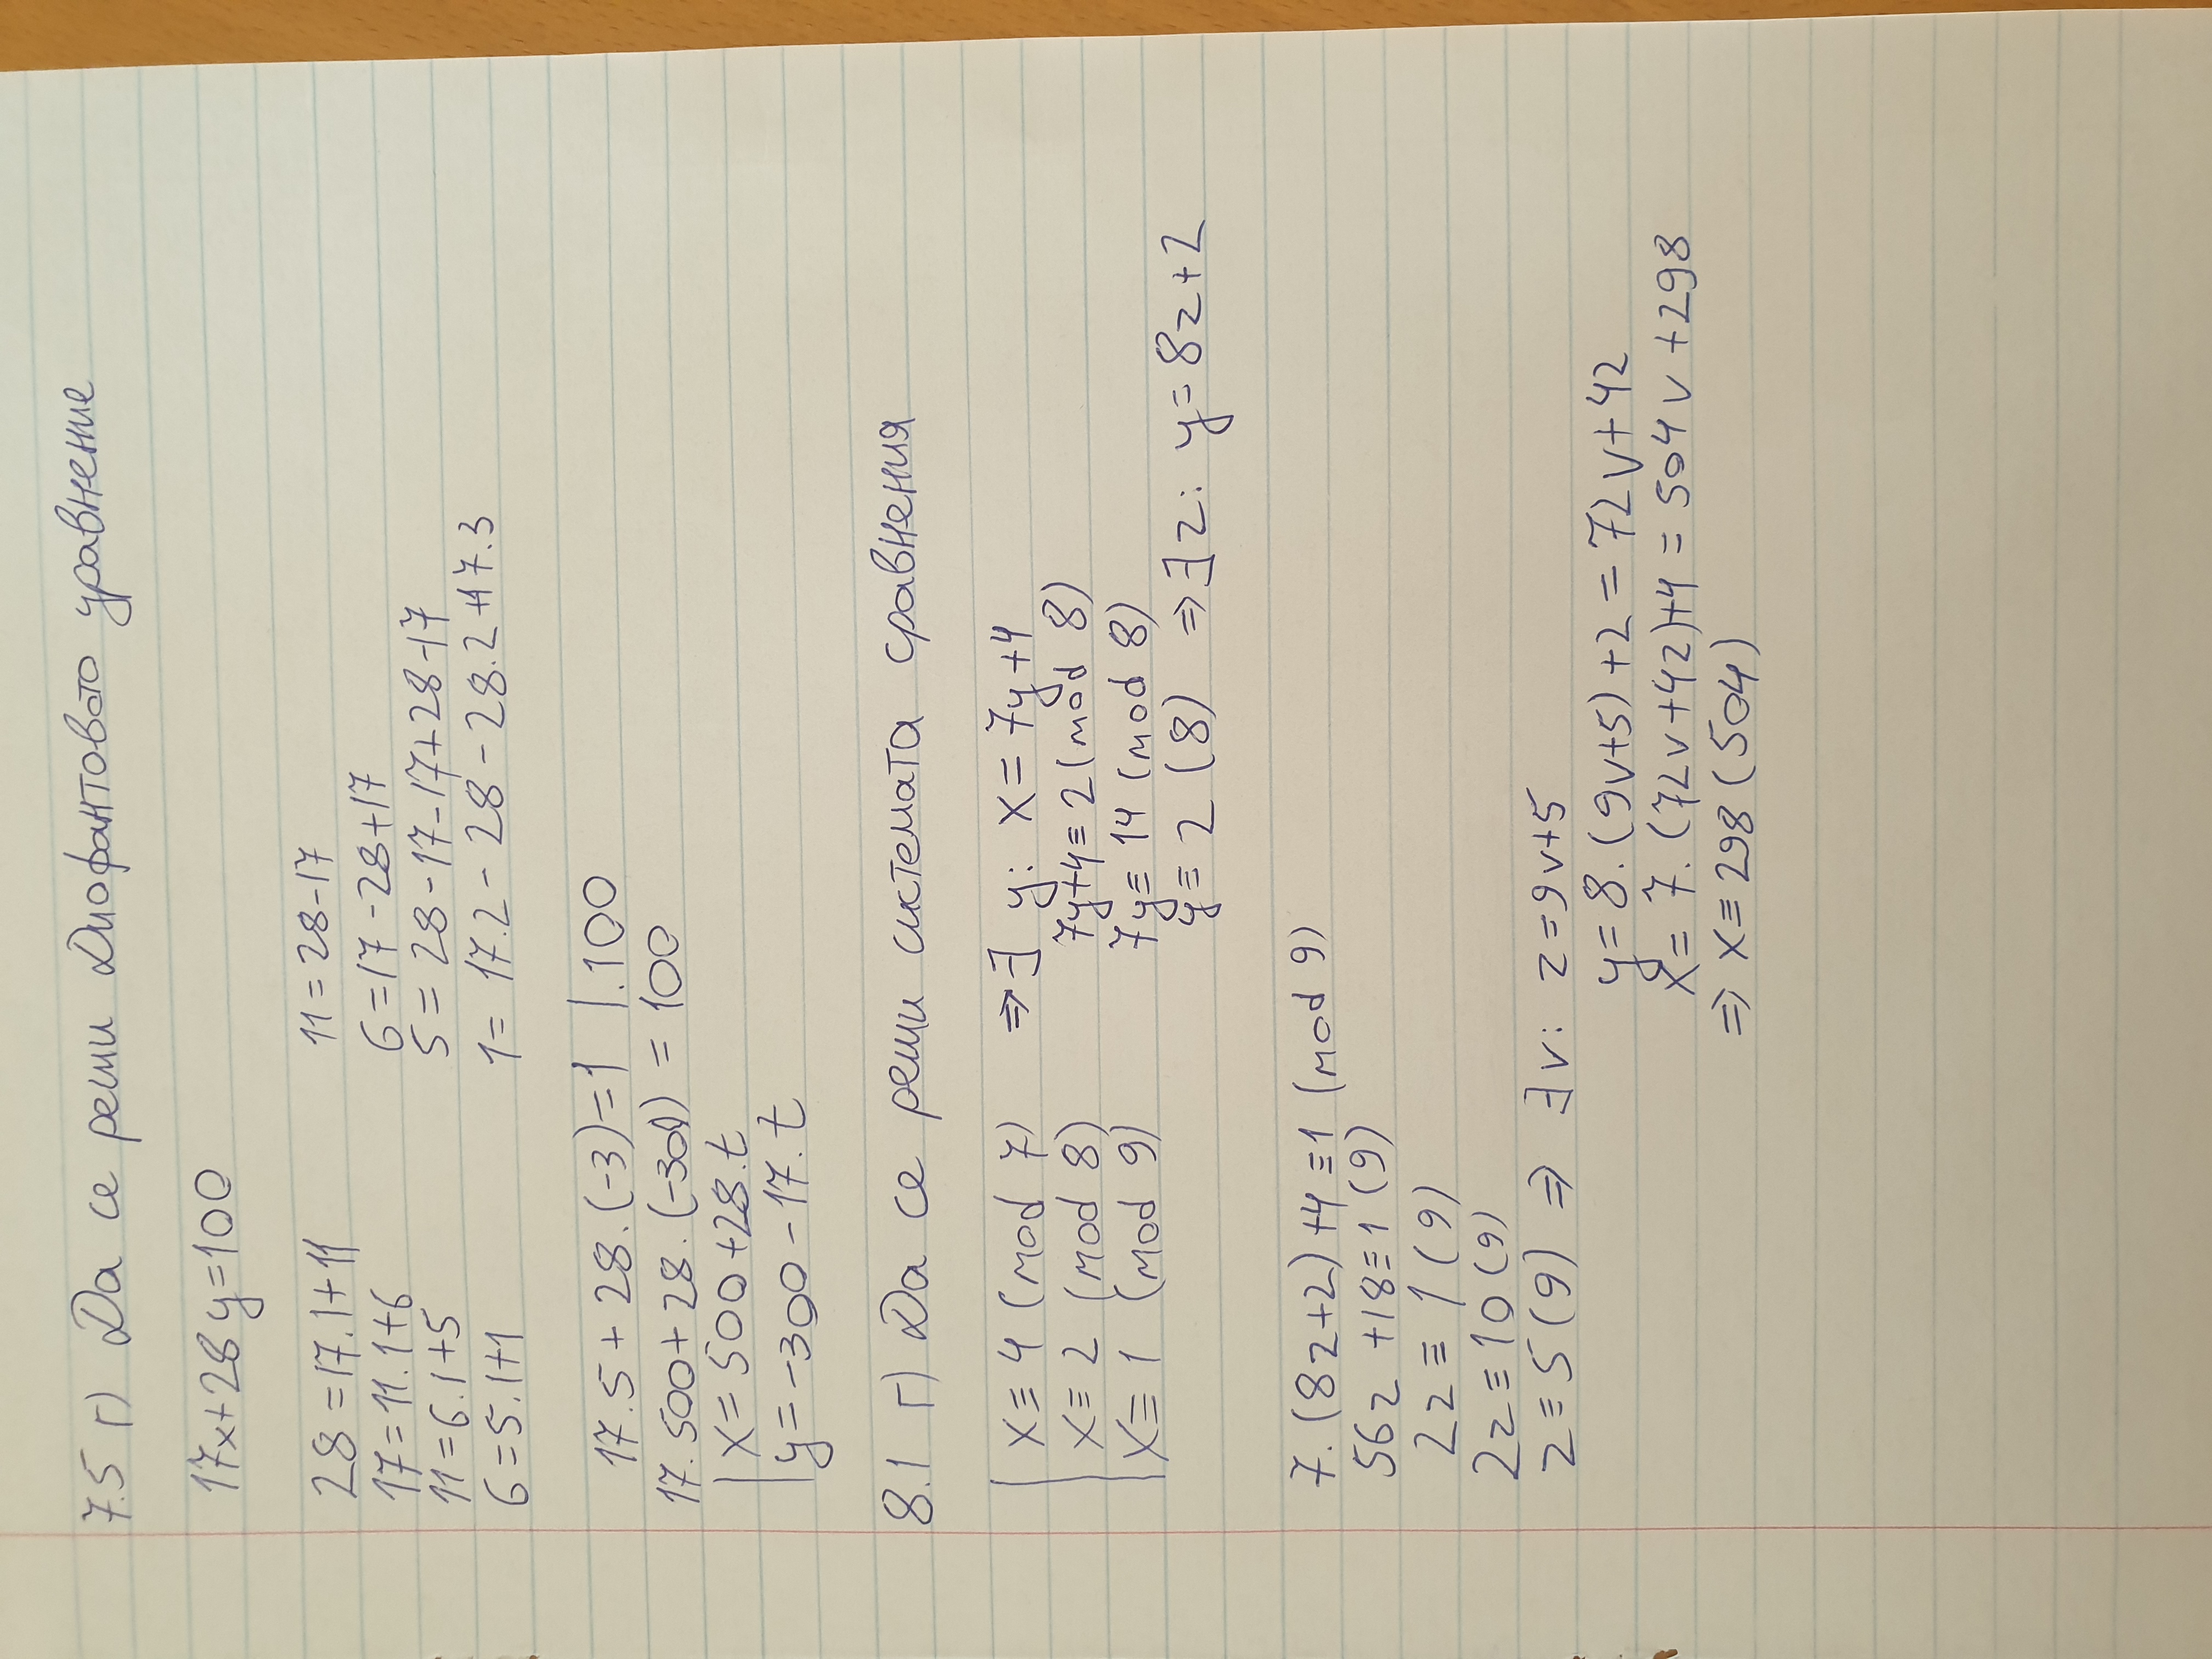 7.5 г) Да се реши Диофантовото уравнение
17x+28y=100
28=17.1+11 11=28-17
17=11.1+6 6=17-28+17
11=6.1+5 5=28-17-17+28-17
6=5.1+1 1=17.2-28-28.2+17.3
17.5+28.(-3)=1 |.100
17.500+28.(-300)=100
x=500+28.t
y=-300-17.t
8.1 г) Да се реши системата сравнения
x≡4 (mod 7) ⇒∃ y: x=7y+4
x≡2 (mod 8) 7y+4≡2(mod 8)
x≡1 (mod 9) 7y≡14 (mod 8)
y≡2 (8) ⇒∃z: y=8z+2
7.(8z+2)+4≡1 (mod 9)
56z+18≡1 (9)
2z≡1 (9)
2z≡10 (9)
z≡5 (9) ⇒ ∃v: z=9v+5
y=8.(9v+5)+2=72v+42
x=7.(72v+42)+4=504v+298
⇒ x≡298 (504)